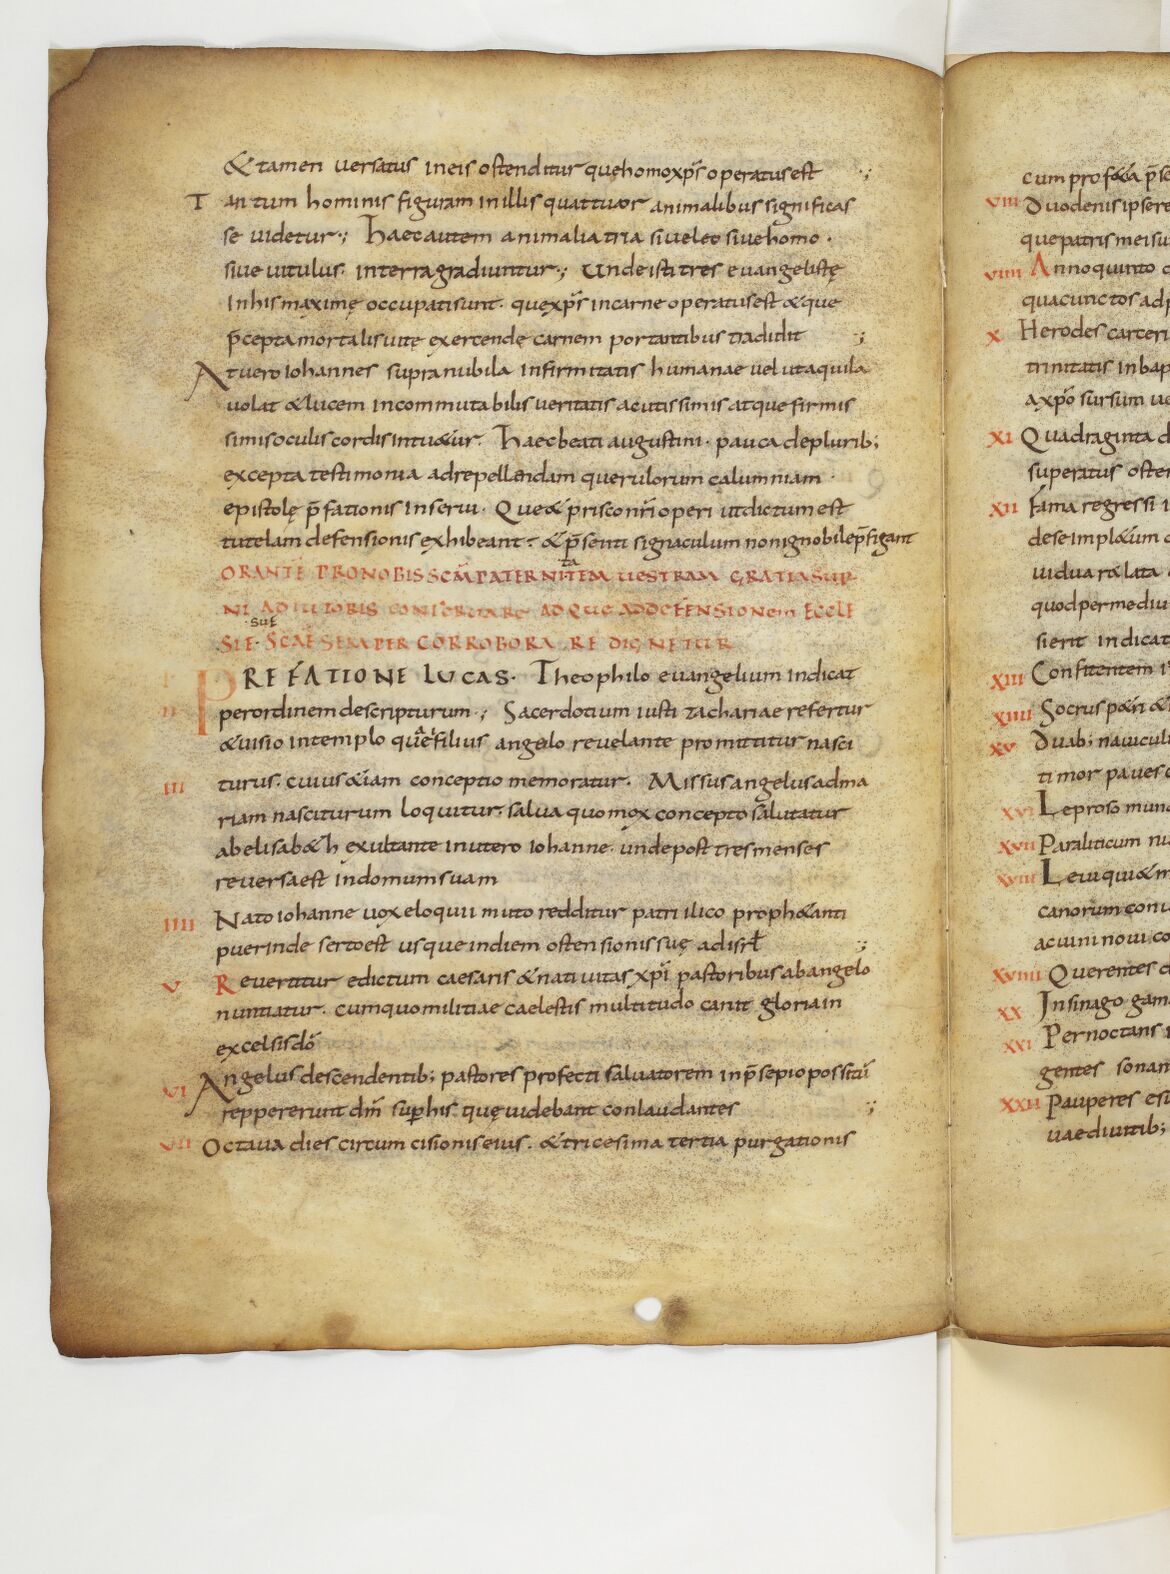 & tamen versatus in eis ostenditur que homo xp̄s operatus est ·;
Tantum hominis figuram in illis quattuor animalibus significas
se uidetur·; Haec autem animalia tria siue leo siue homo ·
siue uitulus · interra gradiuntur·; Unde isti tres euangelistę
In his maximę occupati sunt · que xp̄s in carne operatus est & que
p̄cepta mortalis uitę exercendę carnem portantibus tradidit ·;
At uero iohannes supra nubila infirmitatis humanae uel ut aquila
uolat & lucem incommutabilis ueritatis acutissimis atque firmis
simis oculis cordis intu&ur · Haec beati augustini · pauca de plurib;
excepta testimonia ad repellendam querulorum calumniam ·
epistolę p̄fationis inserui · Que & prisco nr̄i operi ut dictum est
tutelam defensionis exhibeant · & p̄senti signaculum non ignobile p̄figant
ORANTE PRO NOBIS SCĀM PATERNITATEM UESTRAM GRATIA SUP
NI ADIUTORIS CONSERUARE ADQUE AD DEFENSIONEM ECCLE
SIE · SUE SCAE SEMPER CORROBORARE DIGNETUR
I PREFATIONE LUCAS · Theophilo euangelium indicat
II per ordinem descripturum·; Sacerdotium iusti zachariae refertur
& uisio in templo que ei filius angelo reuelante promittitur nasci
III turus · cuius &iam conceptio memoratur · Missus angelus ad ma
riam nasciturum loquitur · salua quo mox concepto salutatur
ab elisab&h exultante in utero iohanne · unde post tres menses
reuersa est in domum suam
IIII Nato iohanne uox eloquii muto redditur patri ilico proph&anti
puer inde serto est usque in diem ostensionis suę ad isrł ·;
V Reuertitur edictum caesaris & natiuitas xp̄i pastoribus ab angelo
nuntiatur · cum quo militiae caelestis multitudo canit gloria in
excelsis dō
VI Angelus descendentib; pastores profecti saluatorem in p̄sepio possitū
reppererunt dm̄ super his quę uidebant conlaudantes ·;
VII Octaua dies circumcisionis eius · & tricesima tertia purgationis
cum prof&ia
VIII Duodenis ipse
que patris mei su
VIIII Anno quinto
qua cunctos ad
X Herodes carceri
trinitatis in bap
a xp̄o sursum
XI Quadraginta d
superatus osten
XII Fama regressi
de se impl&um
uidua
quod per
sierit indicat
XIII Confitentem
XIIII Socrus p&ri &
XV Duab; nauicul
timor paues
XVI Leproso mund
XVII Paraliticum
XVIII Leui qui &
canorum
ac uini noui co
XVIIII Querentes
XX In sinagoga
XXI Pernoctans
gentes sonan
XXII Pauperes esu
uae diuitib;